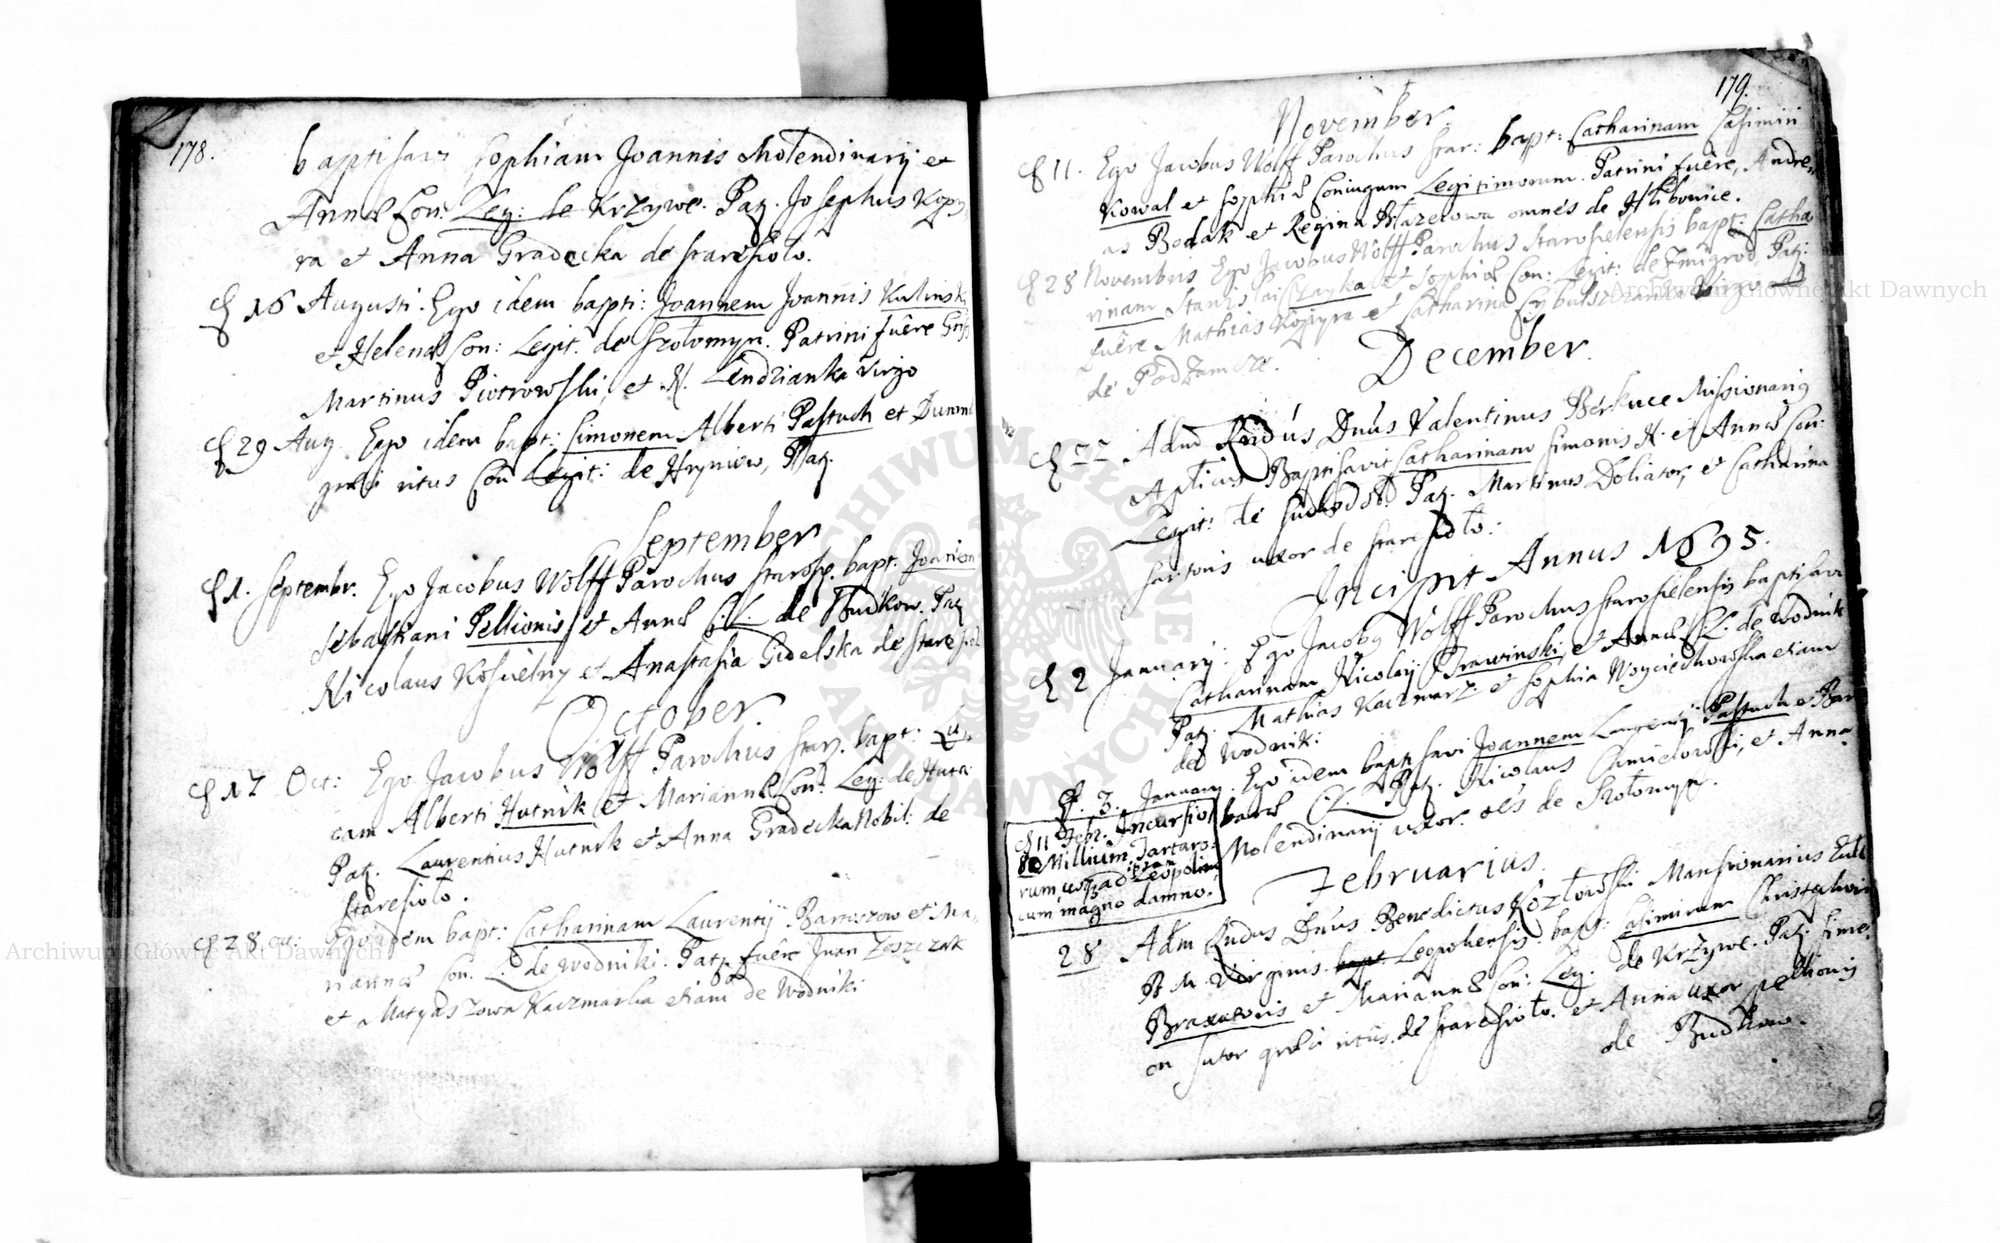 178.
baptisavi Sophiam Joannis Molendinarij et
Annæ Con: Leg: de Krzywe. Pat. Josephus Kopy
ra et Anna Gradecka de staresioło.
d 16 Augusti. Ego idem bapti: Joannem Joannis Kulinski
et Helenæ Con: Legit. de Szołomyn. Patrini fuêre
Martinus Piotrowski, et N. Lendzianka virgo
d 29 Aug. Ego idem bapt: Simonem Alberti Pastuch et
græci ritus Con Legit: de Hryniow, Pat.
September
d 1. Septembr. Ego Jacobus Wolff Parochus starosi. bapt. Joannem
Sebastiani Pellionis et Annæ C. L. de Budkow. Pat
Nicolaus Koscielny et Anastasia Gidelska de stare
October.
d 17 Oct: Ego Jacobus Wolff Parochus star. bapt: Lu,
cam Alberti Hutnik et Mariannæ Con: Leg: de Huta
Pat. Laurentius Hutnik et Anna Gradecka Nobil: de
staresioło.
d 28 oct: Ego idem bapt: Catharinam Laurentij Baroszow et Ma,
riannæ Con. L. de Wodniki. Pat. fuêre Iwan Zoszczak
et Matyaszowa Kaczmarka etiam de Wodniki
179.
November.
d 11. Ego Jacobus Wolff Parochus star: bapt: Catharinam Casimiri
Kowal et Sophiæ Coniugum Legitimorum. Patrini fuêre, Andre,
as Bodak et Regina Błazeiowa omnes de Hlibowice.
d 28 Novembris Ego Jacobus Wolff Parochus starosielensis bapt: Catha
rinam Stanislai Czayka et Sophiæ Con: Legit: de Zmigrod, Pat:
fuêre Mathias Kopyra et Catharina Cybulszczanka Virgo
de Podzamcze.
December.
d 22 Adm Rndus Dnus Valentinus Berkuce Missionarius
Apticus Baptisavit Catharinam Simonis N. et Annæ Con:
Legit: de Suchodoł. Pat. Martinus Doliator, et Catharina
sartoris uxor de staresioło:
Incipit Annus 1695.
d 2 Januarij: Ego Jacobus Wolff Parochus starosielensis baptisavi
Catharinam Nicolaij Brawinski, et Annæ C. L. de Wodnik
Pat. Mathias Kaczmarz. et Sophia Woyciechowska etiam
de Wodniki
d. 3. Januarij. Ego idem baptisavi Joannem Laurentij Pastuch et Bar
baræ C. L. Pat. Nicolaus Chmielowski, et Anna
Molendinarij uxor. oes de Szołomyn.
d 11 Feb. Incursio
80 Millium Tartaro:
rum usq ad Leopolim
cum magno damno.
Februarius.
28 Adm Rndus Dnus Benedictus Kozłowski Mansionarius
B M. Virginis. bapt. Leopoliensis. bapt: Casimirum Christophori
Braxatoris et Mariannæ Con: Leg. de Krzywe. Pat. Sime,
on sutor græci ritus. de staresioło. et Anna uxor pellionis
de Budkow.
Archiwum Główne Akt Dawnych
Archiwum Główne Akt Dawnych
ARCHIWUM GŁÓWNE
AKT DAWNYCH